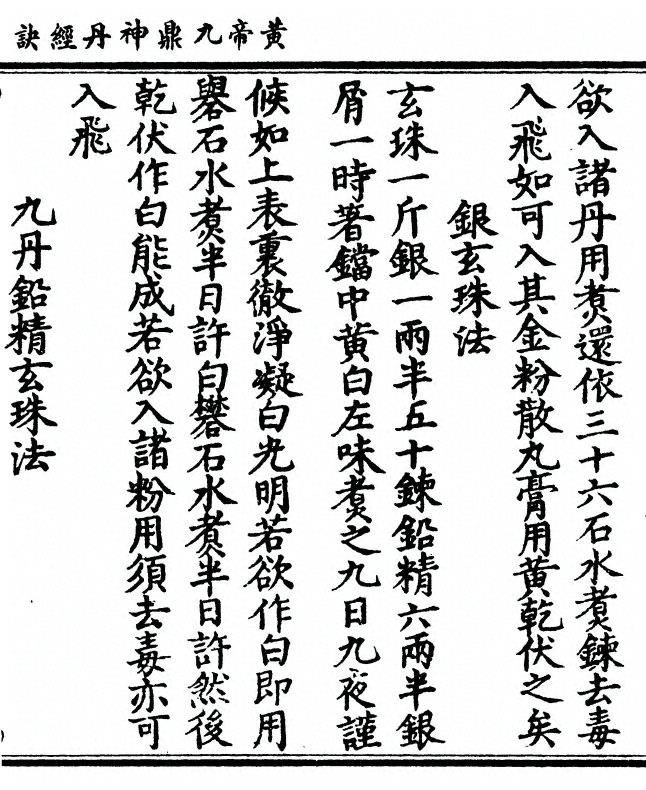 黃帝九鼎神丹經訣
欲入諸丹用煑還依三十六石水煑鍊去毒
入飛如可入其金粉散丸膏用黃乾伏之矣
銀玄珠法
玄珠一斤銀一兩半五十鍊鉛精六兩半銀
屑一時著鐺中黃白左味煑之九日九夜謹
候如上表裏徹淨凝白光明若欲作白即用
礜石水煑半日許白礬石水煑半日許然後
乾伏作白能成若欲入諸粉用須去毒亦可
入飛
九丹鉛精玄珠法